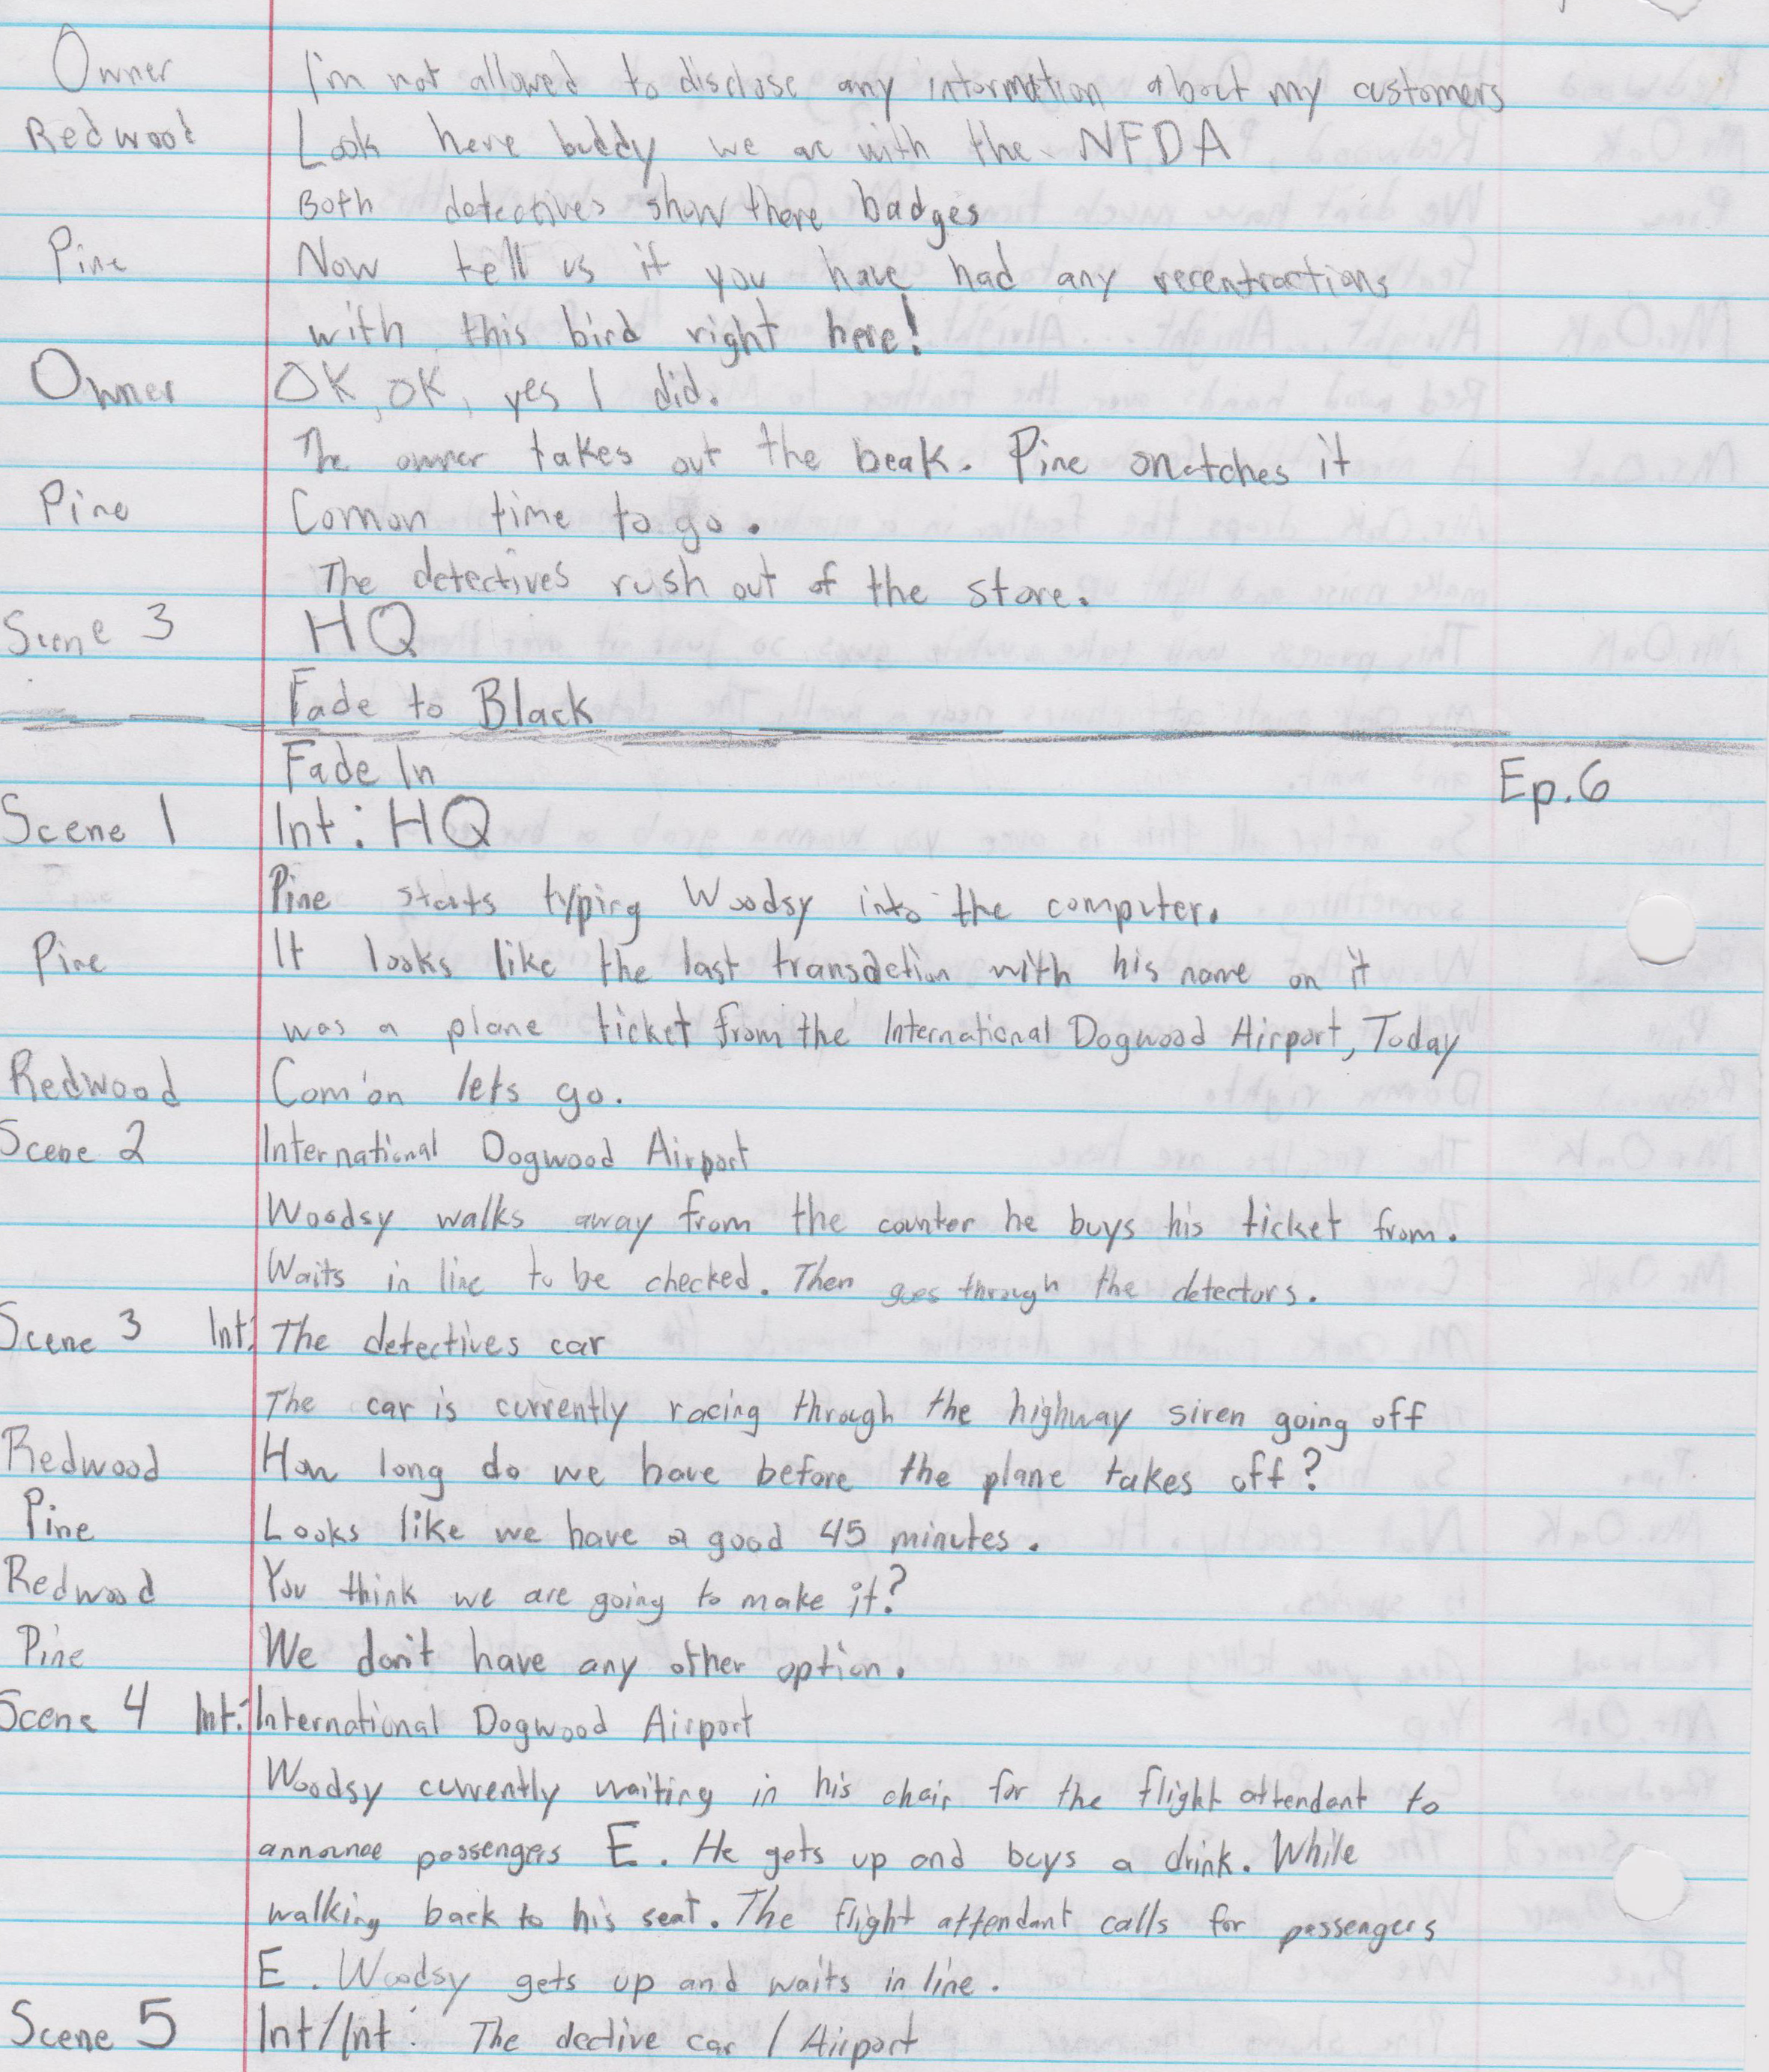 Owner I'm not allowed to disclose any information about my customers
Redwood Look here buddy we ar with the NFDA
Both detectives show there badges
Pine Now tell us if you have had any recentractions
with this bird right here!
Owner OK, OK, yes I did.
The owner takes out the beak. Pine snatches it
Pine Comon time to go.
The detectives rush out of the store.
Scene 3 HQ
Fade to Black
Fade In
Ep.6
Scene 1 Int: HQ
Pine starts typing Woodsy into the computer.
Pine It looks like the last transaction with his name on it
was a plane ticket from the International Dogwood Airport, Today
Redwood Com'on lets go.
Scene 2 International Dogwood Airport
Woodsy walks away from the counter he buys his ticket from.
Waits in line to be checked. Then goes through the detectors.
Scene 3 Int: The detectives car
The car is currently racing through the highway siren going off
Redwood How long do we have before the plane takes off?
Pine Looks like we have a good 45 minutes.
Redwood You think we are going to make it?
Pine We don't have any other option.
Scene 4 Int: International Dogwood Airport
Woodsy currently waiting in his chair for the flight attendant to
announce passengers E. He gets up and buys a drink. While
walking back to his seat. The flight attendant calls for passengers
E. Woodsy gets up and waits in line.
Scene 5 Int/Int: The dective car / Airport